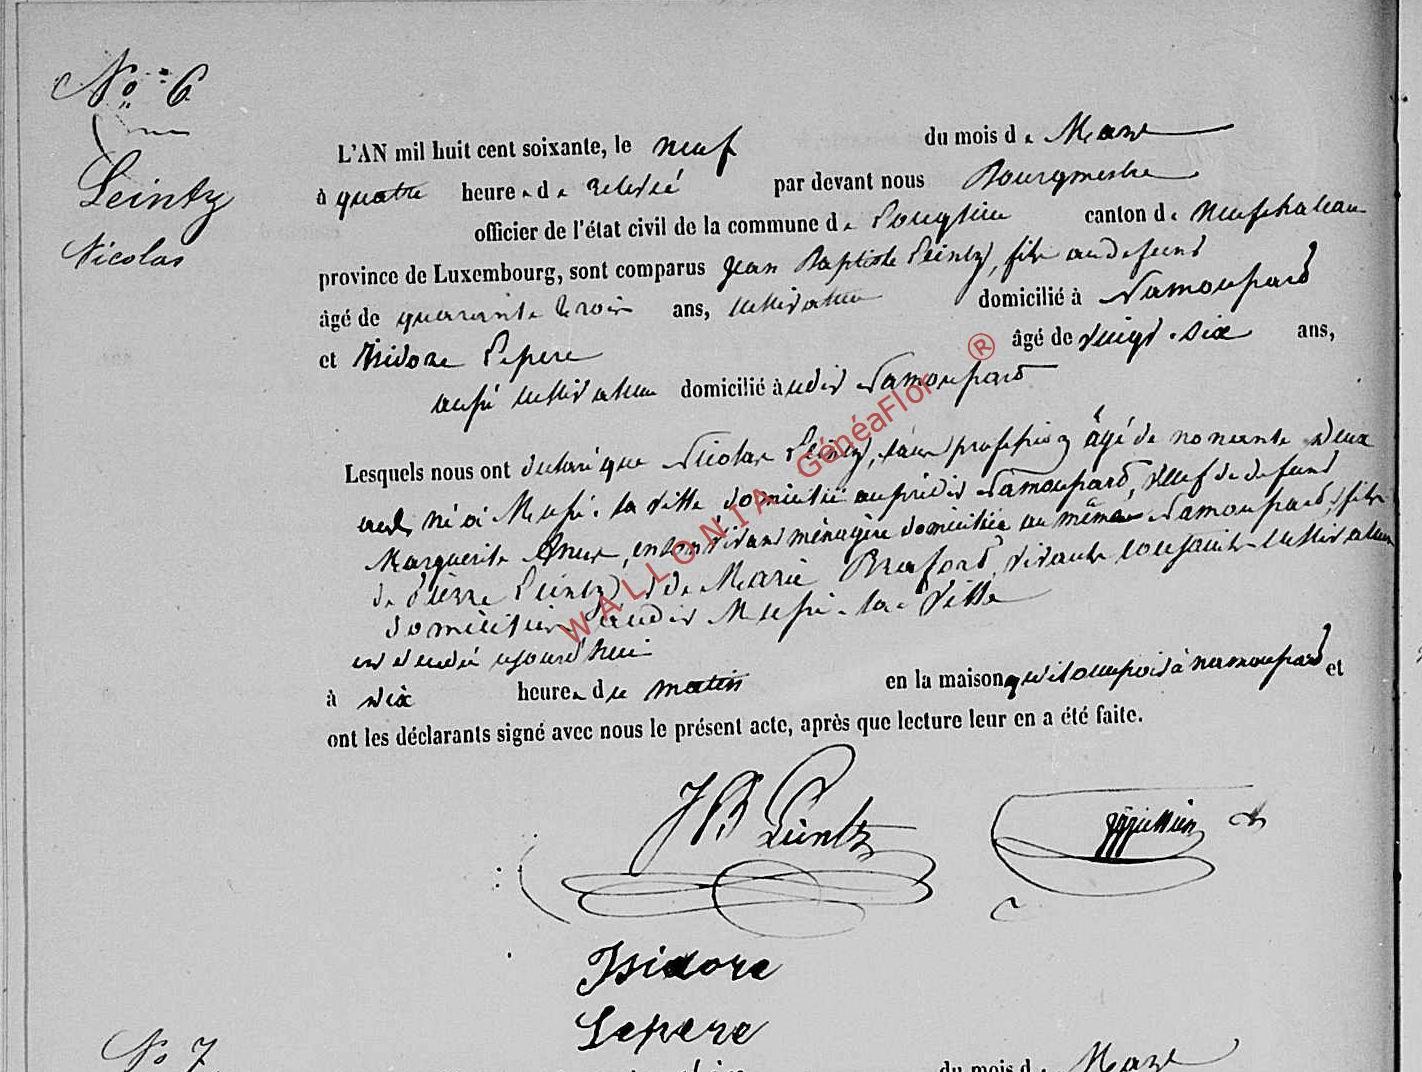 N° 6
Leintz
Nicolas
L'AN mil huit cent soixante, le neuf du mois de Mars
à quatre heures de relevé par devant nous Bourgmestre
officier de l'état civil de la commune de Longlier canton de Neufchateau
province de Luxembourg, sont comparus Jean Baptiste Leintz, fils au défunt
âgé de quarante trois ans, cultivateur domicilié à Namoussard
et Isidore Lepere âgé de vingt-six ans,
aussi cultivateur domicilié à udit Namoussard
Lesquels nous ont déclaré que Nicolas Leintz, sans profession âgé de nonante deux
ans né à Massu-la ville domicilié au prédit Namoussard, veuf de défunt
Marguerite en son vivant ménagère domiciliée au même Namoussard, fils
de Pierre Leintz et de Marie vivants conjoints cultivateurs
domiciliés audit la-Ville
est décédé ajourd'hui
à dix heures du matin en la maison qu'il occupoit à namoussard et
ont les déclarants signé avec nous le présent acte, après que lecture leur en a été faite.
JB Leintz
Isidore
Lepere
N° 7
du mois de Mars
WALLONIA GénéaFlor ®